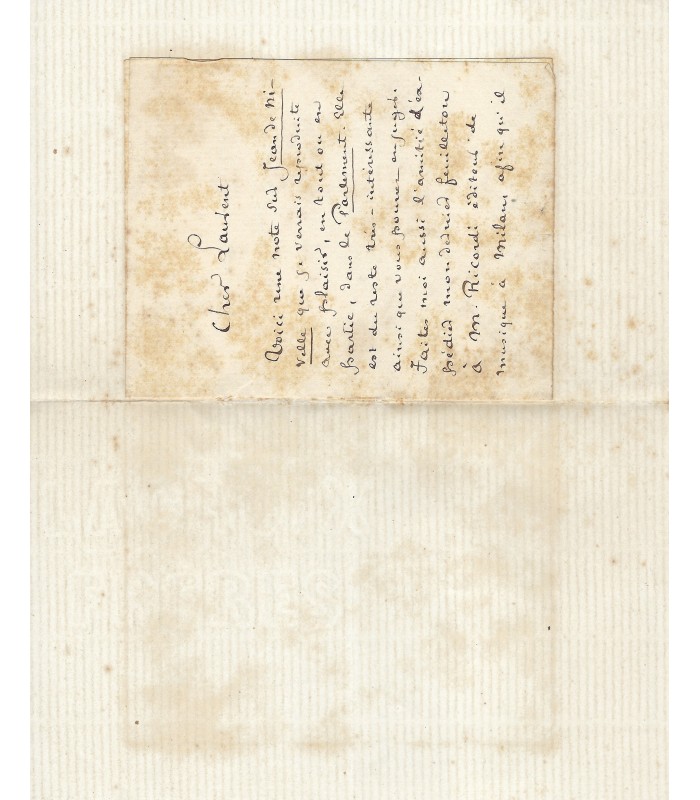 Cher Laurent
Voici une note sur Jean de Ni-
velle que je verrais reproduite
avec plaisir, en tout ou en
partie, dans le Parlement. Elle
est du reste très-intéressante
ainsi que vous pourrez en juger.
Faites moi aussi l'amitié d'ex-
pédier mon dernier feuilleton
à M. Ricordi éditeur de
musique à Milan, afin qu'il